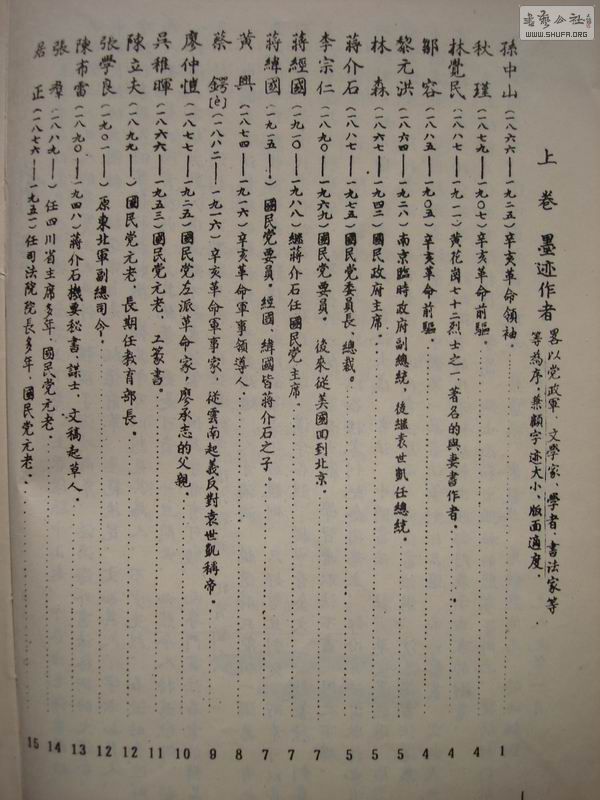 書藝公社
WWW.SHUFA.ORG
上卷 墨迹作者
畧以党政軍、文學家、學者、書法家等
等為序，兼顧字迹大小、版面適度．
孫中山（一八六六——一九二五）辛亥革命領袖 1
秋瑾（一八七九——一九〇七）辛亥革命前驅． 4
林覺民（一八八七——一九一一）黃花崗七十二烈士之一著名的與妻書作者． 4
鄒容（一八八五——一九〇五）辛亥革命前驅． 4
黎元洪（一八六四——一九二八）南京臨時政府副總統，後繼袁世凱任總統。 5
林森（一八六七——一九四二）國民政府主席。 5
蔣介石（一八八七——一九七五）國民党委員長、總裁。 5
李宗仁（一八九〇——一九六九）國民党要員。後來從美國回到北京。 7
蔣經國（一九一〇——一九八八）繼蔣介石任國民党主席。 7
蔣緯國（一九一五——）國民党要員。經國、緯國皆蔣介石之子。 7
黃興（一八七四——一九一六）辛亥革命軍事領導人． 8
蔡鍔[è]（一八八二——一九一六）辛亥革命軍事家，從雲南起義反對袁世凱稱帝。 9
廖仲愷（一八七七——一九二五）國民党左派革命家，廖承志的父親． 10
吳稚暉（一八六六——一九五三）國民党元老，工篆書。 11
陳立夫（一八九九——）國民党元老，長期任教育部長。 12
張學良（一九〇一——）原東北軍副總司令． 12
陳布雷（一八九〇——一九四八）蔣介石機要秘書、謀士、文稿起草人。 13
張羣（一八八九——）任四川省主席多年、國民党元老。 14
居正（一八七六——一九五一）任司法院院長多年、國民党元老． 15